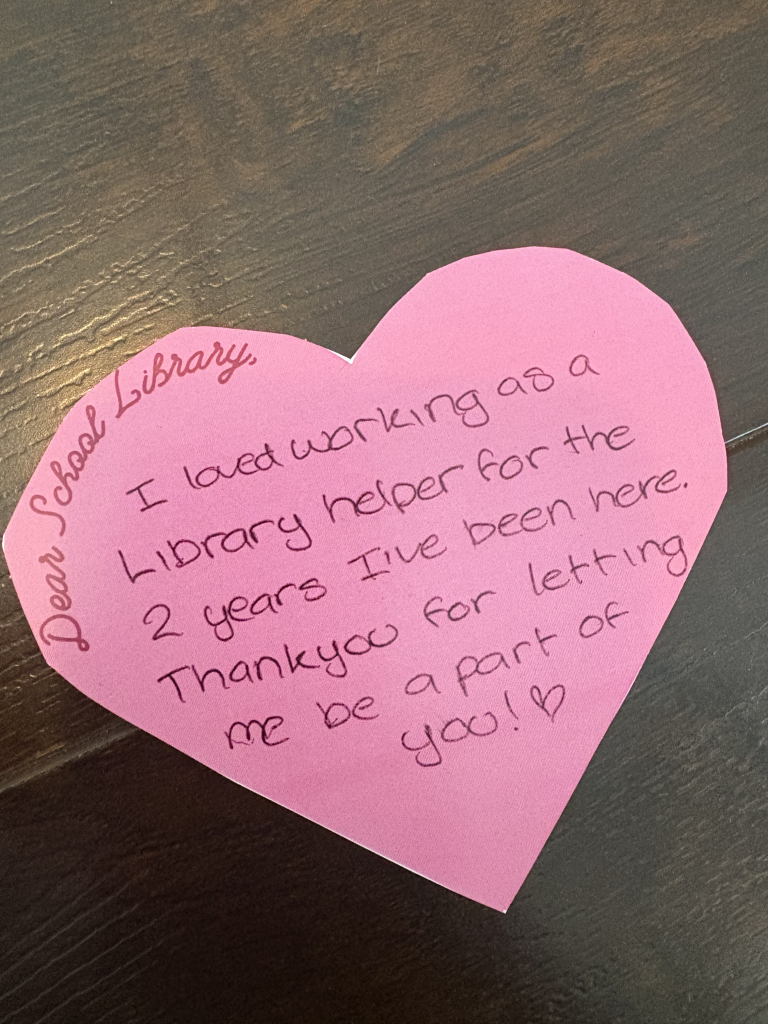 Dear School Library,
I loved working as a
Library helper for the
2 years I've been here.
Thankyou for letting
me be a part of
you! ♡